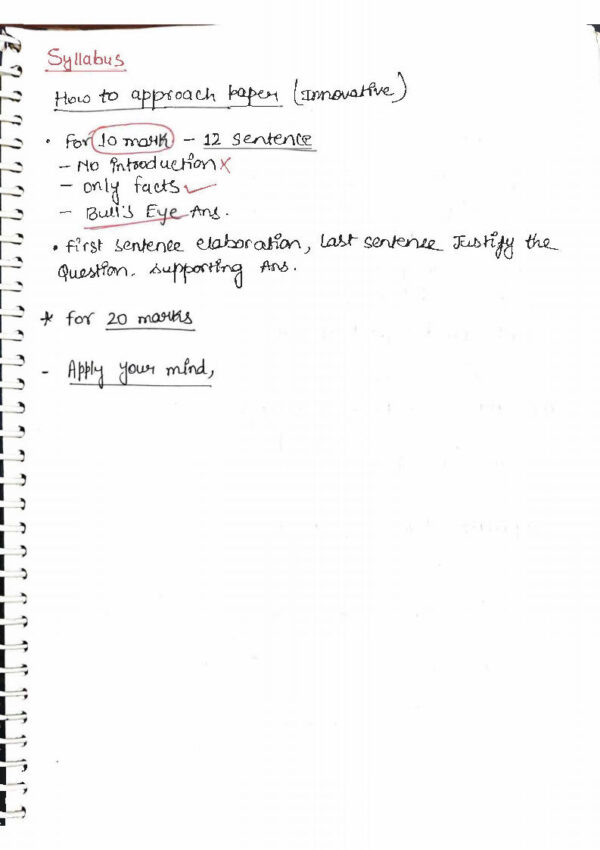 Syllabus
How to approach paper (Innovative)
• For 10 mark - 12 sentence
- No introduction x
- only facts ✓
- Bull's Eye Ans.
• First sentence elaboration, last sentence Justify the
Question. supporting Ans.
* for 20 marks
- Apply your mind,